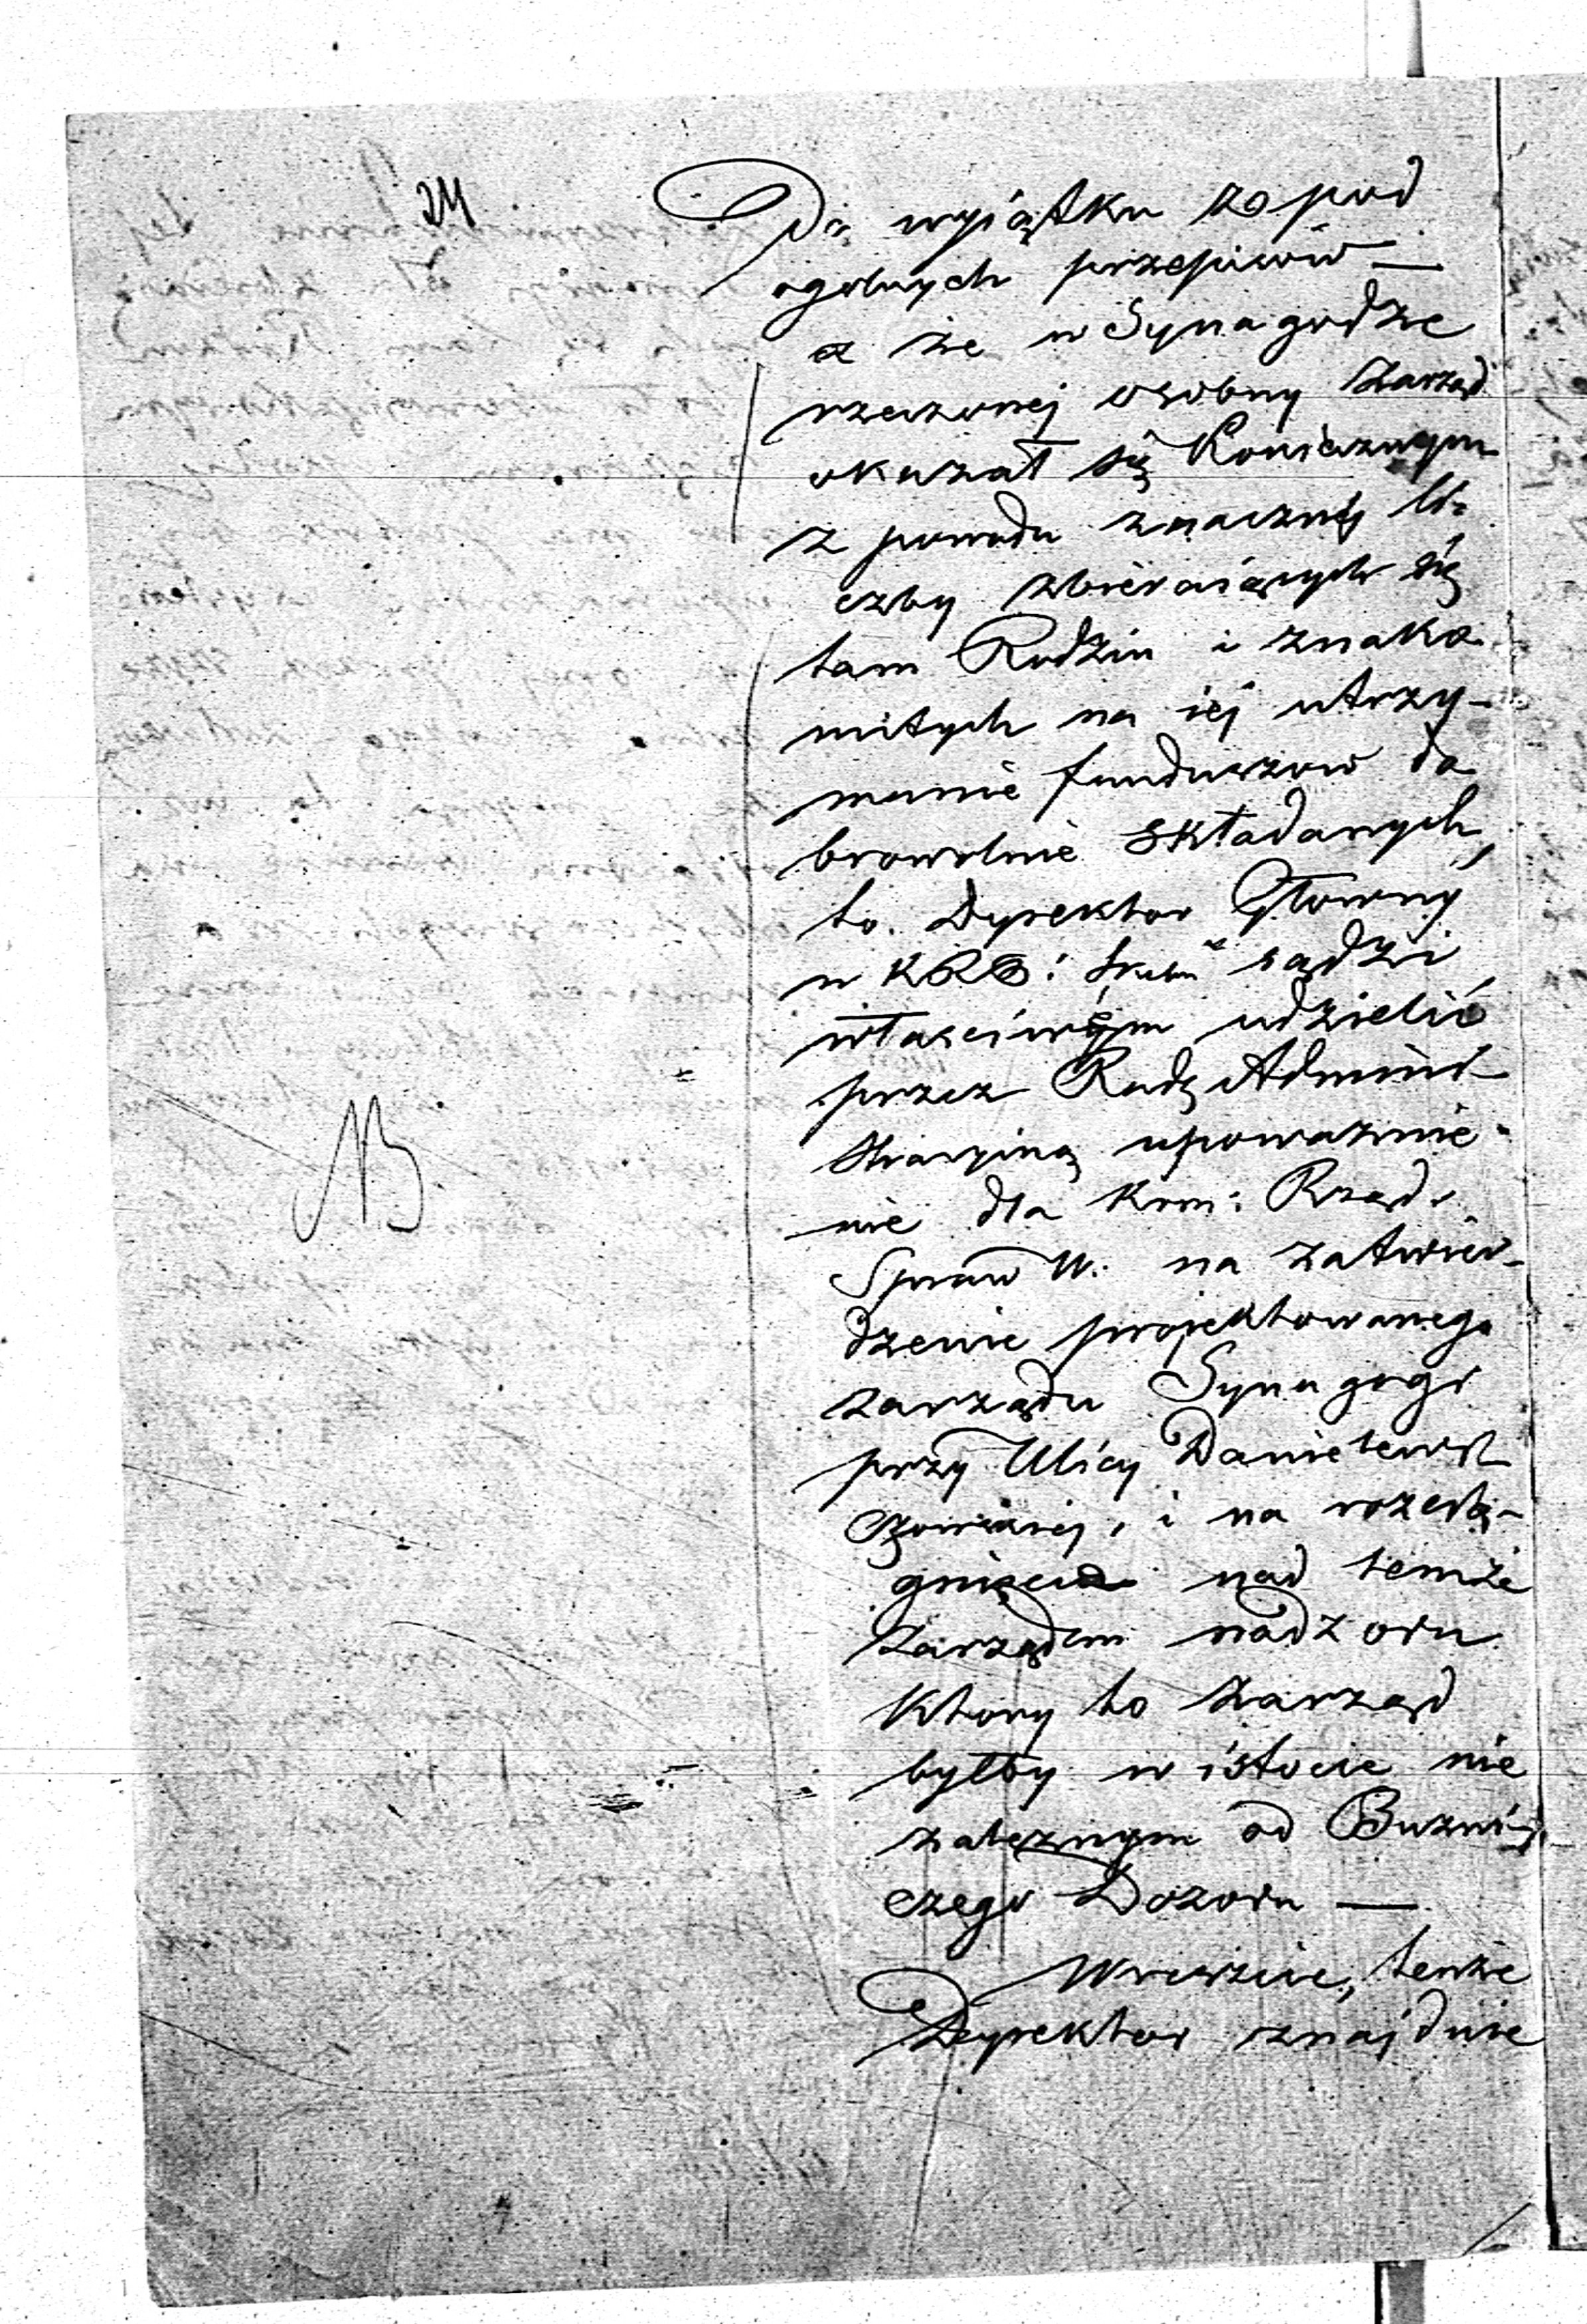 24
Do wyiątku z pod
ogolnych przepisów —
a że w Synagodze
rzeczonej osobny Zarząd
okazał się Koniecznym
z powodu znacznej li-
czby zbieraiących się
tam Rodzin i znako
mitych na iéj utrzy-
manie funduszow do
browolnie składanych,
to Dyrektor Główny
w KR : Skarbu sądzi
właściwym udzielić
przez Radę Admini-
stracyiną upoważnie-
nie dla Kom: Rząd:
Spraw W: na zatwier-
dzenie projektowanego
zarządu Synagogi
przy Ulicy Danielewi-
czowskiej, i na rozcią-
gnięcia nad temże
Zarządem nadzoru
Ktory to Zarząd
byłby w istocie nie
zależnym od Bużni-
czego Dozoru —
Wreszcie, tenże
Dyrektor znajduie
NB